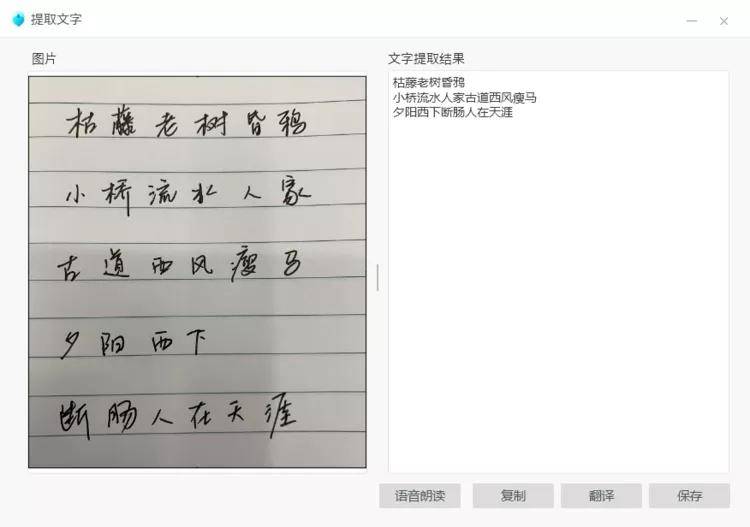 提取文字
图片
文字提取结果
枯藤老树昏鸦
小桥流水人家
古道西风瘦马
夕阳西下
断肠人在天涯
枯藤老树昏鸦
小桥流水人家古道西风瘦马
夕阳西下断肠人在天涯
语音朗读
复制
翻译
保存